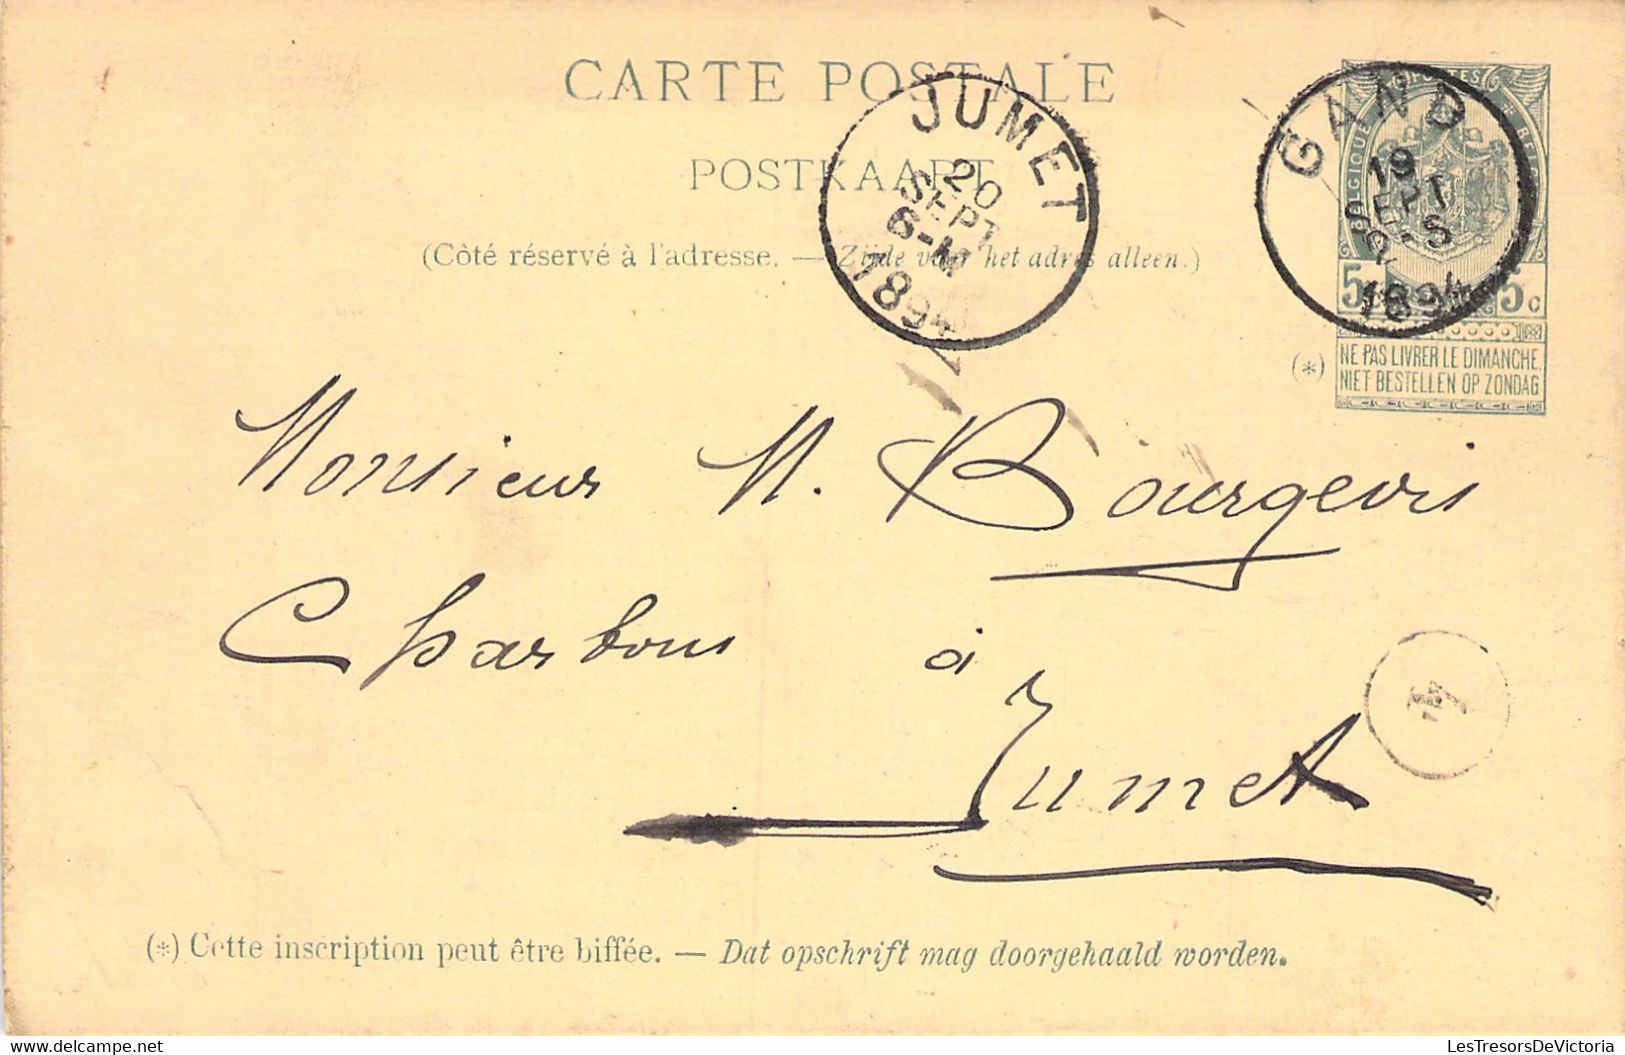 CARTE POSTALE
POSTKAART
(Côté réservé à l'adresse. — Zijde voor het adres alleen.)
JUMET
20
SEPT
6-M
1894
GAND
19
SEPT
-S
1894
POSTES
BELGIQUE
BELGIË
5c 5c
(*) NE PAS LIVRER LE DIMANCHE.
NIET BESTELLEN OP ZONDAG
Monsieur M. Bourgeois
Charbons à
Jumet
4
(*) Cette inscription peut être biffée. — Dat opschrift mag doorgehaald worden.
delcampe.net
LesTresorsDeVictoria